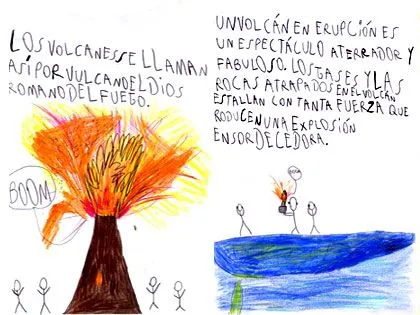 LOS VOLCANES SE LLAMAN
ASÍ POR VULCANO EL DIOS
ROMANO DEL FUEGO.
BOOM
UN VOLCÁN EN ERUPCIÓN ES
UN ESPECTÁCULO ATERRADOR Y
FABULOSO. LOS GASES Y LAS
ROCAS ATRAPADOS EN EL VOLCÁN
ESTALLAN CON TANTA FUERZA QUE
RODUCEN UNA EXPLOSIÓN
ENSORDECEDORA.